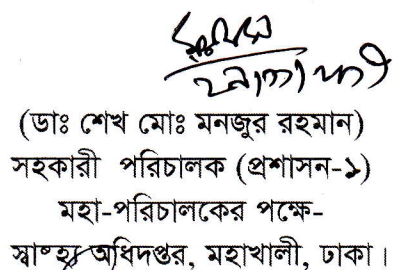 (ডাঃ শেখ মোঃ মনজুর রহমান)
সহকারী পরিচালক (প্রশাসন-১)
মহা-পরিচালকের পক্ষে-
স্বাস্থ্য অধিদপ্তর, মহাখালী, ঢাকা।